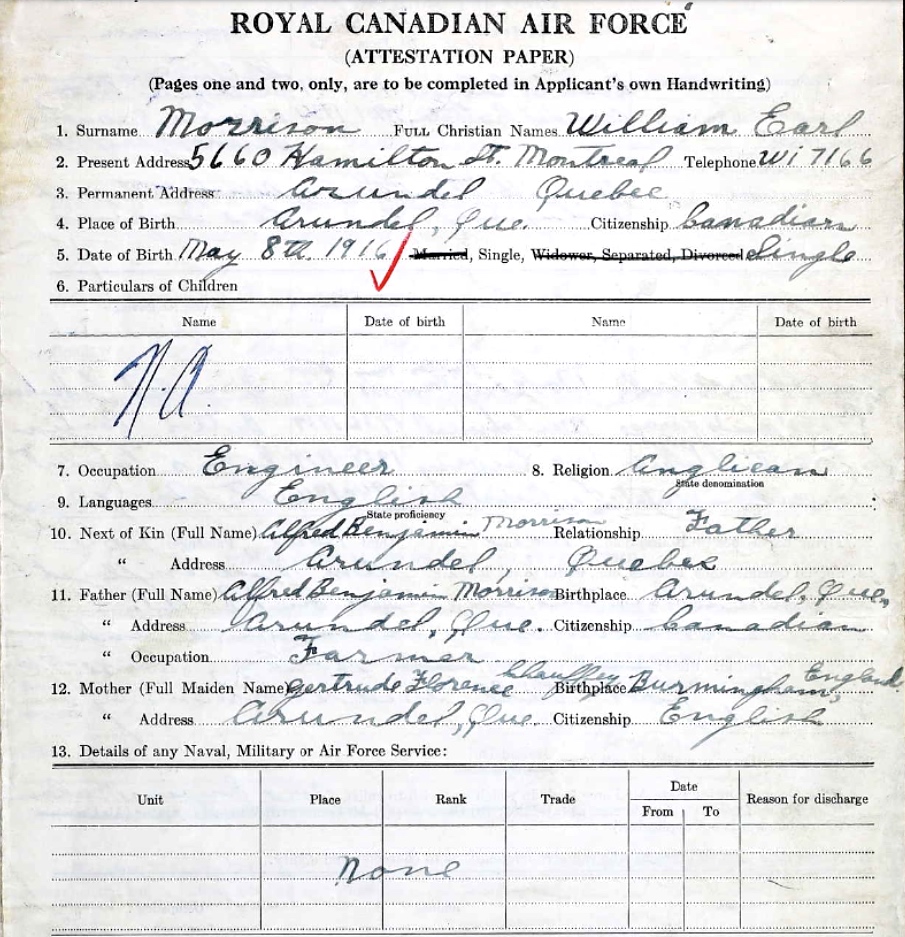 ROYAL CANADIAN AIR FORCE
(ATTESTATION PAPER)
(Pages one and two, only, are to be completed in Applicant's own Handwriting)
1. Surname Morrison FULL Christian Names William Earl
2. Present Address 5660 Hamilton St. Montreal Telephone Wi 7166
3. Permanent Address Arundel Quebec
4. Place of Birth Arundel, Que. Citizenship Canadian
5. Date of Birth May 8th. 1916 Married, Single, Widower, Separated, Divorced Single
6. Particulars of Children
Name Date of birth Name Date of birth
N.A.
7. Occupation Engineer 8. Religion Anglican
State denomination
9. Languages English
State proficiency
10. Next of Kin (Full Name) Alfred Benjamin Morrison Relationship Father
" Address Arundel, Quebec
11. Father (Full Name) Alfred Benjamin Morrison Birthplace Arundel, Que.
" Address Arundel, Que. Citizenship Canadian
" Occupation Farmer
12. Mother (Full Maiden Name) Gertrude Florence Birthplace Burmingham, England.
" Address Arundel, Que. Citizenship English
13. Details of any Naval, Military or Air Force Service:
Unit Place Rank Trade Date Reason for discharge
From To
None